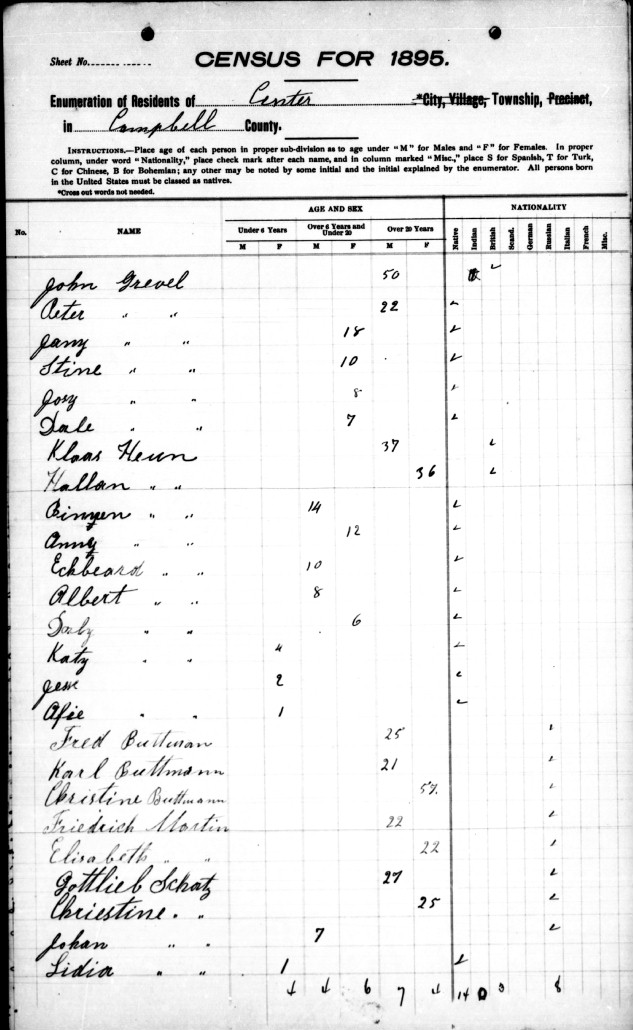 Sheet No.
CENSUS FOR 1895.
Enumeration of Residents of Center *City, Village, Township, Precinct,
in Campbell County.
INSTRUCTIONS.—Place age of each person in proper sub-division as to age under "M" for Males and "F" for Females. In proper
column, under word "Nationality," place check mark after each name, and in column marked "Misc.," place S for Spanish, T for Turk,
C for Chinese, B for Bohemian; any other may be noted by some initial and the initial explained by the enumerator. All persons born
in the United States must be classed as natives.
*Cross out words not needed.
AGE AND SEX NATIONALITY
No. NAME Under 6 Years Over 6 Years and Under 20 Over 20 Years Native Indian British Scand. German Russian Italian French Misc.
M F M F M F
John Grevel 50 ✓
Peter " " 22 ✓
Jany " " 18 ✓
Stine " " 10 ✓
Josy " " 8 ✓
Dale " " 7 ✓
Klaas Heun 37 ✓
Hallan " " 36 ✓
" " 14 ✓
Anny " " 12 ✓
Eckbeard " " 10 ✓
Albert " " 8 ✓
" " 6 ✓
Katy " " 4 ✓
Jesse 2 ✓
Afie " " 1 ✓
Fred Buttman 25 ✓
Karl Buttmann 21 ✓
Christine Buttmann 57 ✓
Friedrich Martin 22 ✓
Elisabeth " " 22 ✓
Gottlieb Schatz 27 ✓
Chriestine " " 25 ✓
Johan " " 7 ✓
Lidia " " 1 ✓
4 4 6 7 4 14 0 3 8